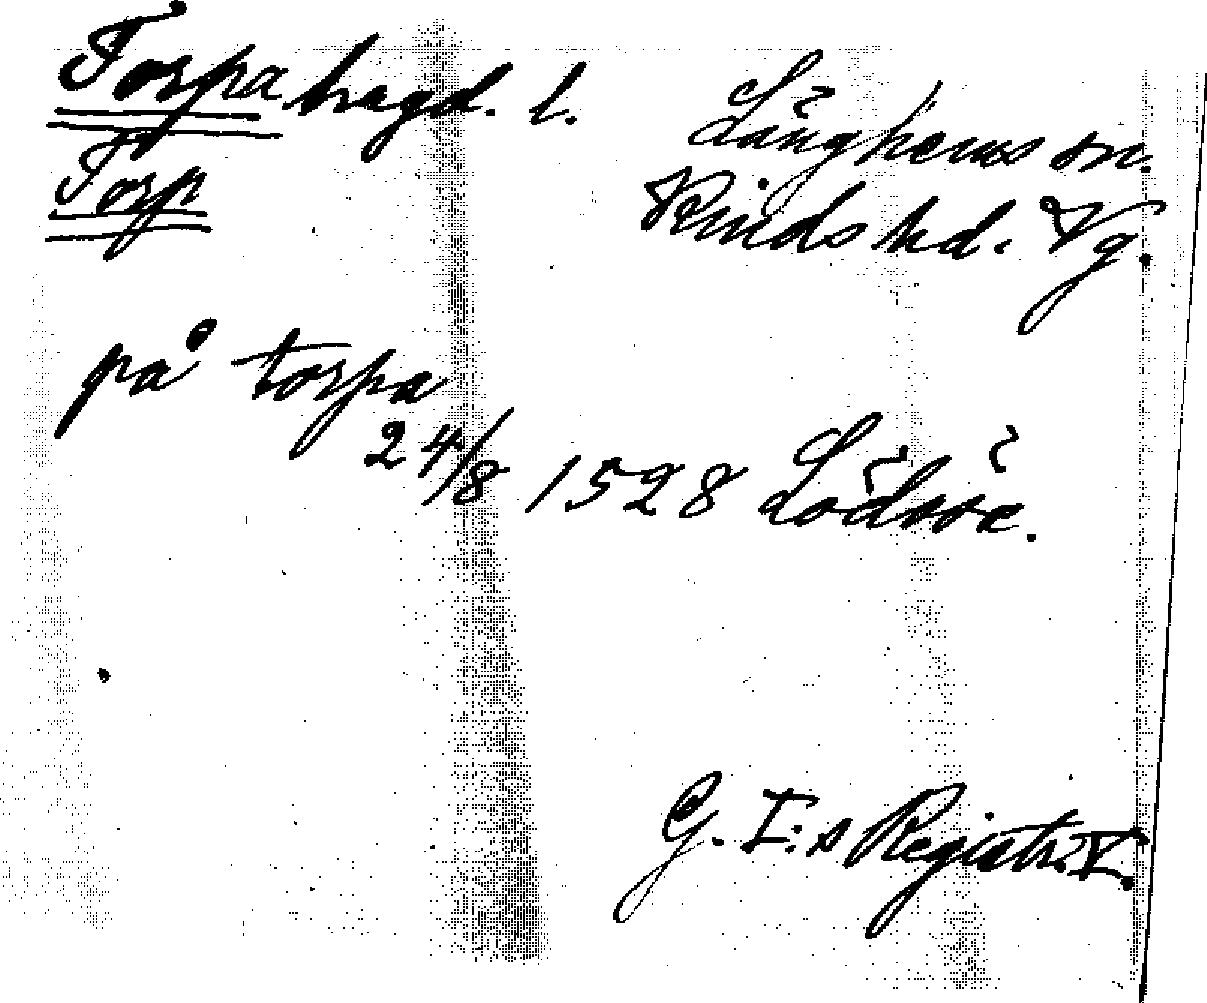 Torpa hrgd. l. Länghems sn.
Torp Kinds hd. Vg.
på torpa
24/8 1528 Lödöse.
G. I:s Registr. V.